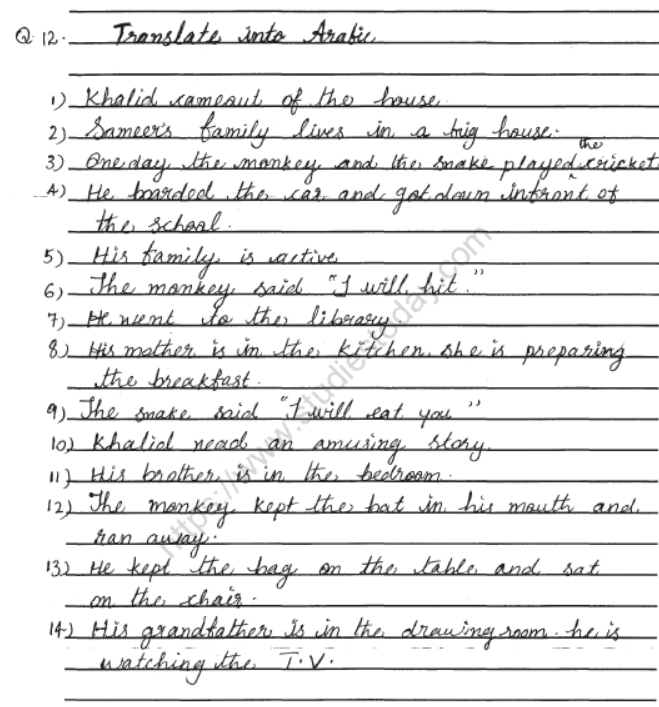 Q 12. Translate into Arabic
1) Khalid cameout of the house
2) Sameer's family lives in a big house.
3) One day the monkey and the snake played the cricket
4) He boarded the car and got down infront of
the school.
5) His family is active
6) The monkey said "I will hit."
7) He went to the library.
8) His mother is in the kitchen. she is preparing
the breakfast.
9) The snake said "I will eat you"
10) Khalid read an amusing story.
11) His brother is in the bedroom.
12) The monkey kept the bat in his mouth and
ran away.
13) He kept the bag on the table and sat
on the chair.
14) His grandfather is in the drawing room. he is
watching the T.V.
https://www.studiestoday.com